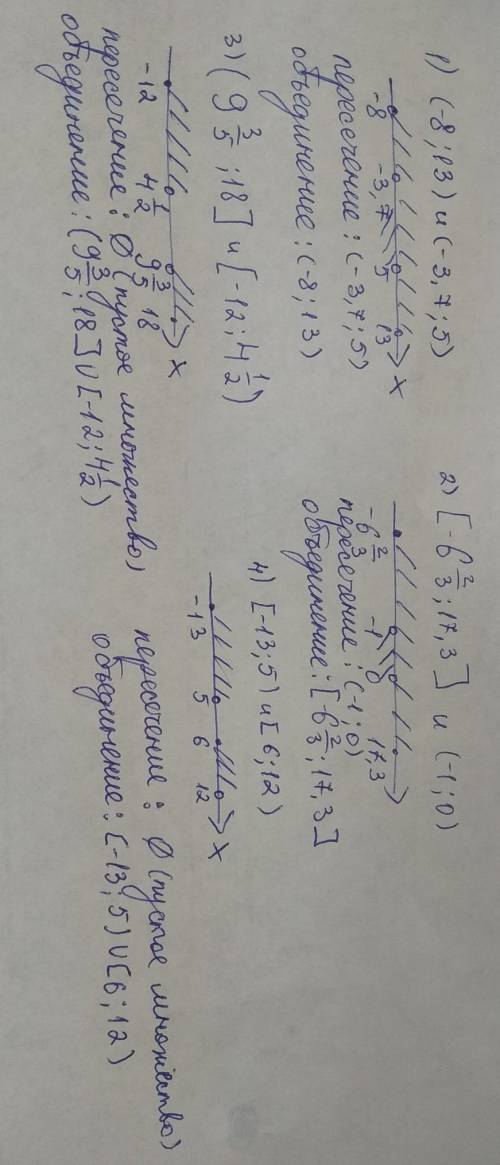 1) (-8;13) и (-3,7;5)
-8 -3,7 5 13 x
пересечение: (-3,7;5)
объединение: (-8;13)
2) [-6 2/3;17,3] и (-1;0)
-6 2/3 -1 0 17,3
пересечение: (-1;0)
объединение: [-6 2/3;17,3]
3) (9 3/5;18] и [-12;4 1/2)
-12 4 1/2 9 3/5 18 x
пересечение: Ø (пустое множество)
объединение: (9 3/5;18]∪[-12;4 1/2)
4) [-13;5) и [6;12)
-13 5 6 12 x
пересечение: Ø (пустое множество)
объединение: [-13;5)∪[6;12)